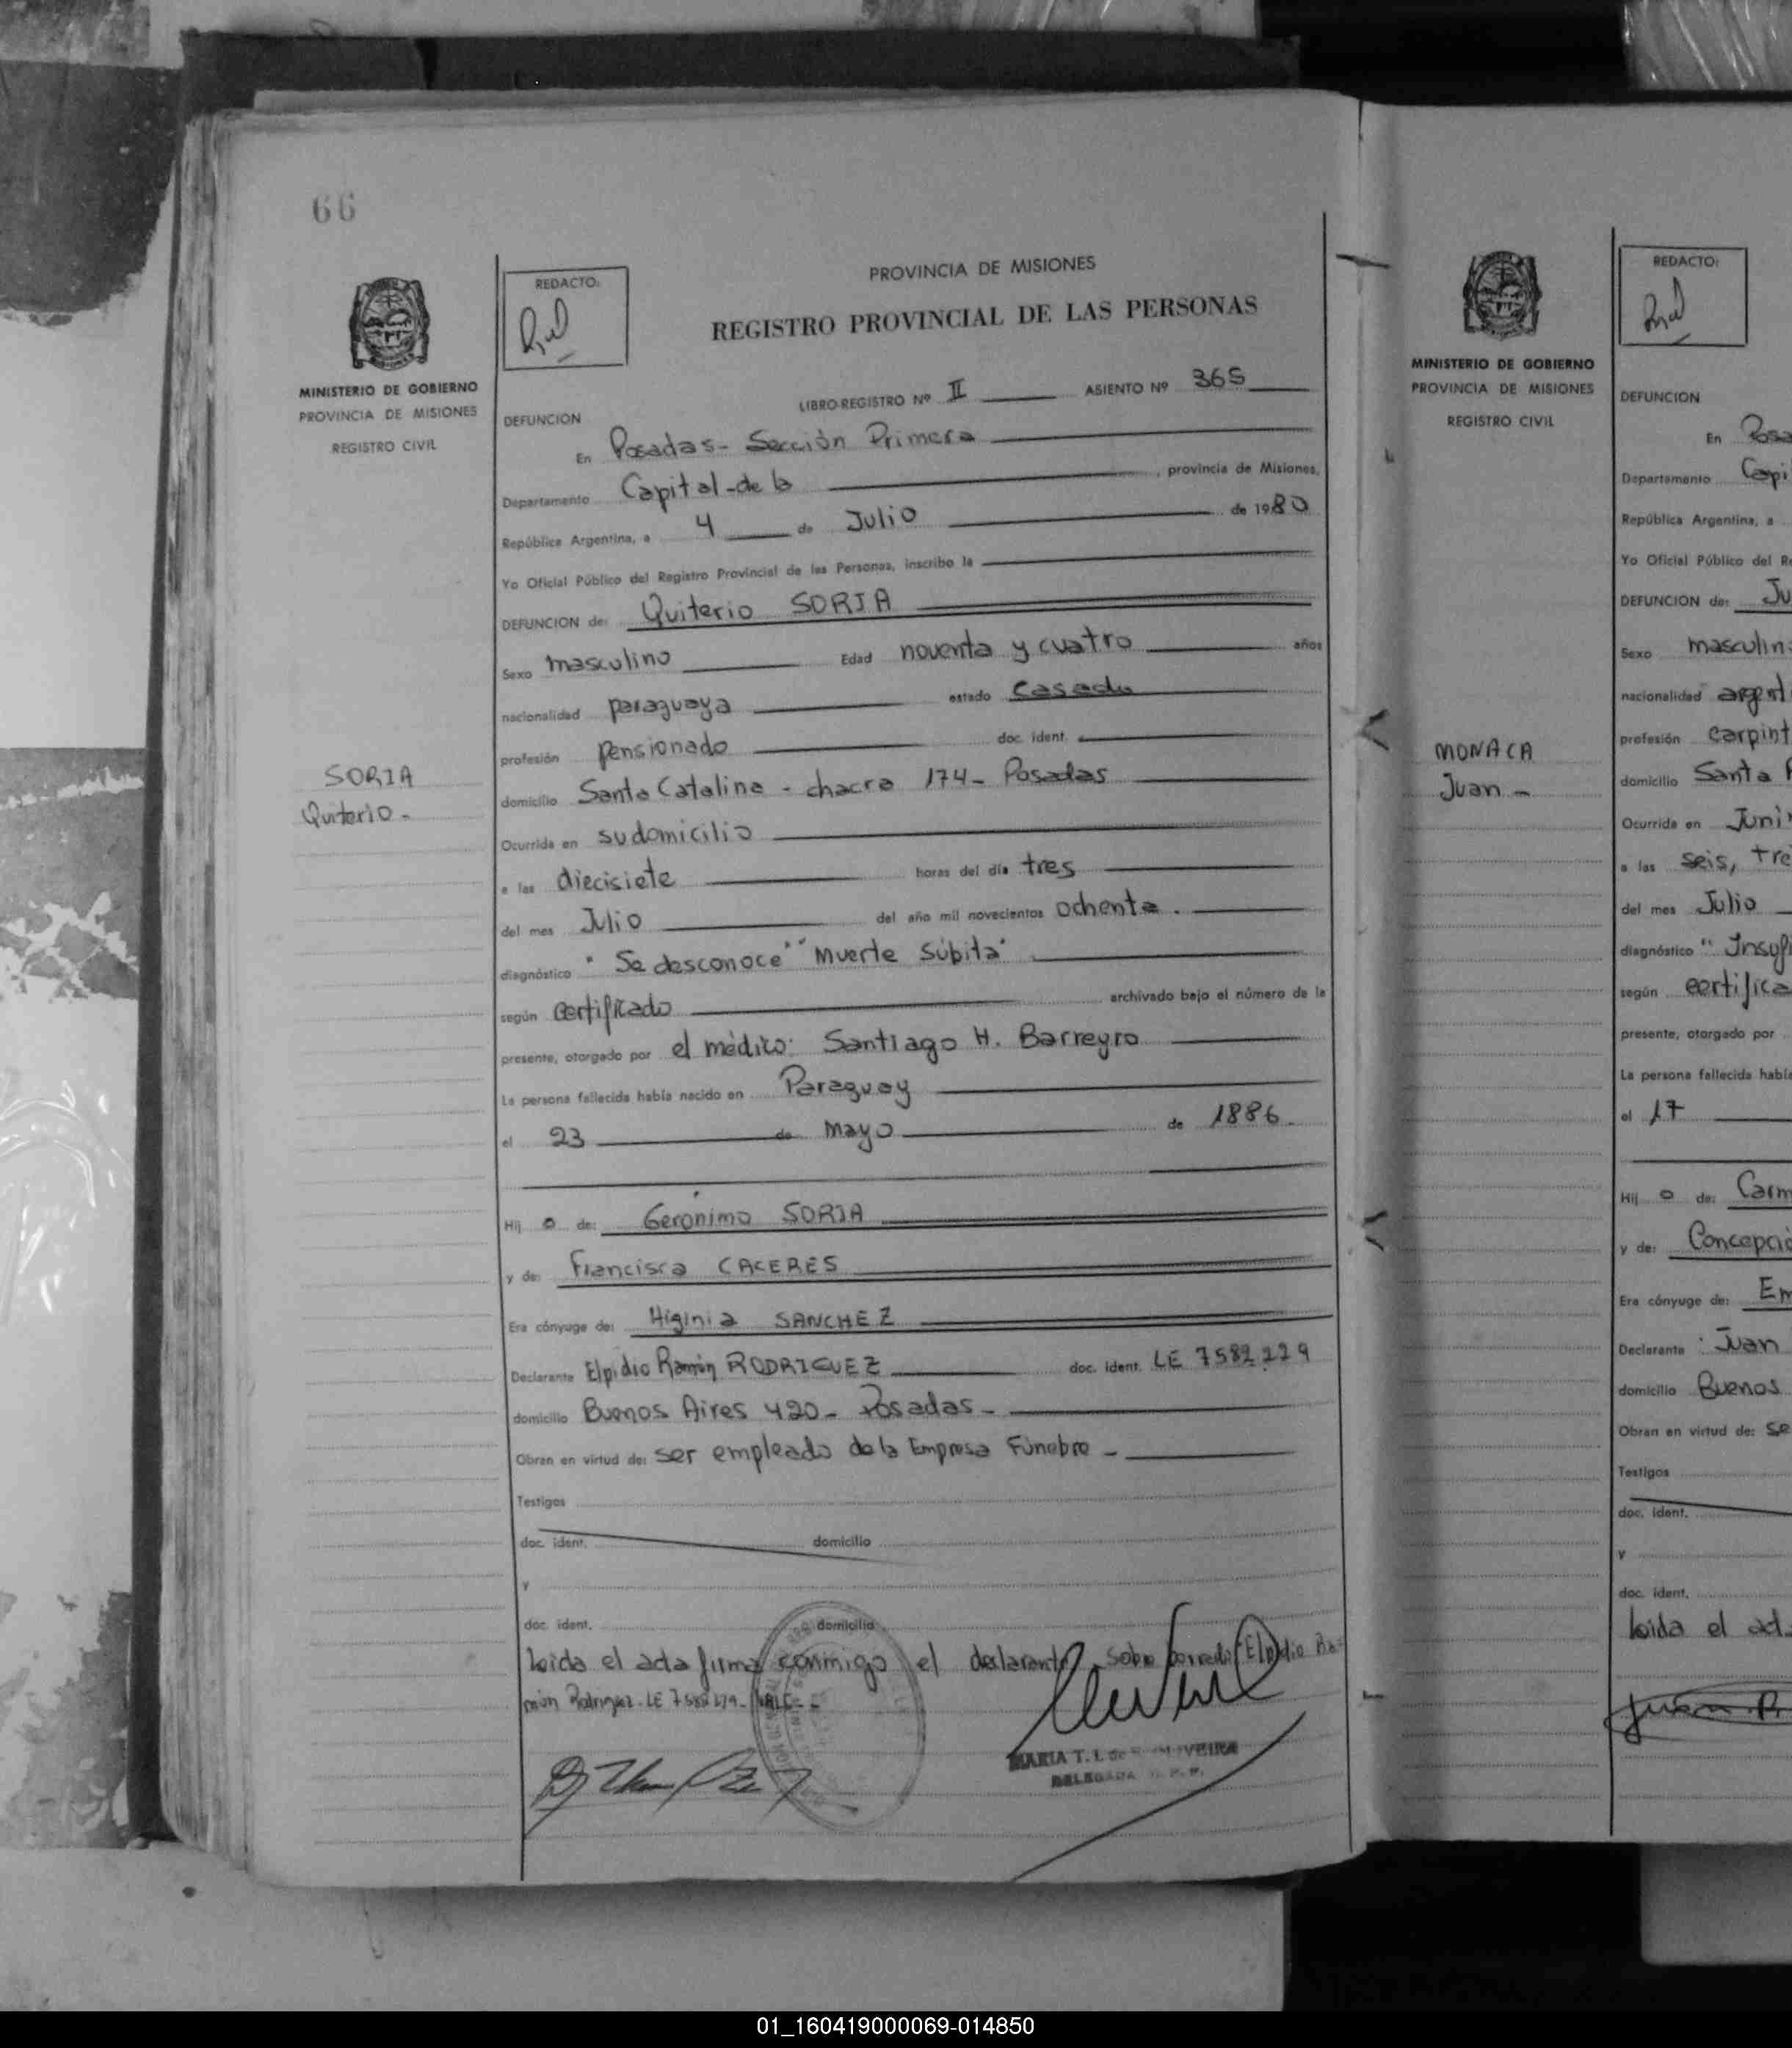 66
PROVINCIA DE MISIONES
REDACTO:
REGISTRO PROVINCIAL DE LAS PERSONAS
MINISTERIO DE GOBIERNO
PROVINCIA DE MISIONES
REGISTRO CIVIL
LIBRO-REGISTRO Nº II ASIENTO Nº 365
DEFUNCION
En Posadas - Sección Primera
Departamento Capital - de la , provincia de Misiones,
República Argentina, a 4 de Julio de 1980
Yo Oficial Público del Registro Provincial de las Personas, inscribo la
DEFUNCION de: Quiterio SORIA
Sexo masculino Edad noventa y cuatro años
nacionalidad paraguaya estado casado
profesión pensionado doc. ident.
SORIA
Quiterio -
domicilio Santa Catalina - chacra 174 - Posadas
Ocurrida en su domicilio
a las diecisiete horas del día tres
del mes Julio del año mil novecientos ochenta .
diagnóstico "Se desconoce" "Muerte Súbita"
según certificado archivado bajo el número de la
presente, otorgado por el médico: Santiago H. Barreyro
La persona fallecida había nacido en Paraguay
el 23 de mayo de 1886.
Hij o de: Gerónimo SORIA
y de: Francisca CACERES
Era cónyuge de: Higinia SANCHEZ
Declarante Elpidio Ramón RODRIGUEZ doc. ident. LE 7582.229
domicilio Buenos Aires 420 - Posadas -
Obran en virtud de: ser empleado de la Empresa Fúnebre -
Testigos
doc. ident. domicilio
y
doc. ident. domicilio
Leida el acta firma conmigo el declarante sobre borrado: Elpidio Ra=
món Rodriguez - LE 7582229 - VALE -
MARIA T. I. de
DELEGADA
REDACTO:
MINISTERIO DE GOBIERNO
PROVINCIA DE MISIONES
REGISTRO CIVIL
DEFUNCION
En Posa
Departamento Capi
República Argentina, a
Yo Oficial Público del Re
DEFUNCION de: Ju
Sexo masculin
nacionalidad argent
profesión carpint
MONACA
Juan -
domicilio Santa
Ocurrida en Juni
a las seis, tre
del mes Julio
diagnóstico "Insufi
según certifica
presente, otorgado por
La persona fallecida había
el 17
Hij o de: Carm
y de: Concepció
Era cónyuge de: Em
Declarante Juan
domicilio Buenos
Obran en virtud de: se
Testigos
doc. ident.
y
doc. ident.
Leida el act
01_160419000069-014850